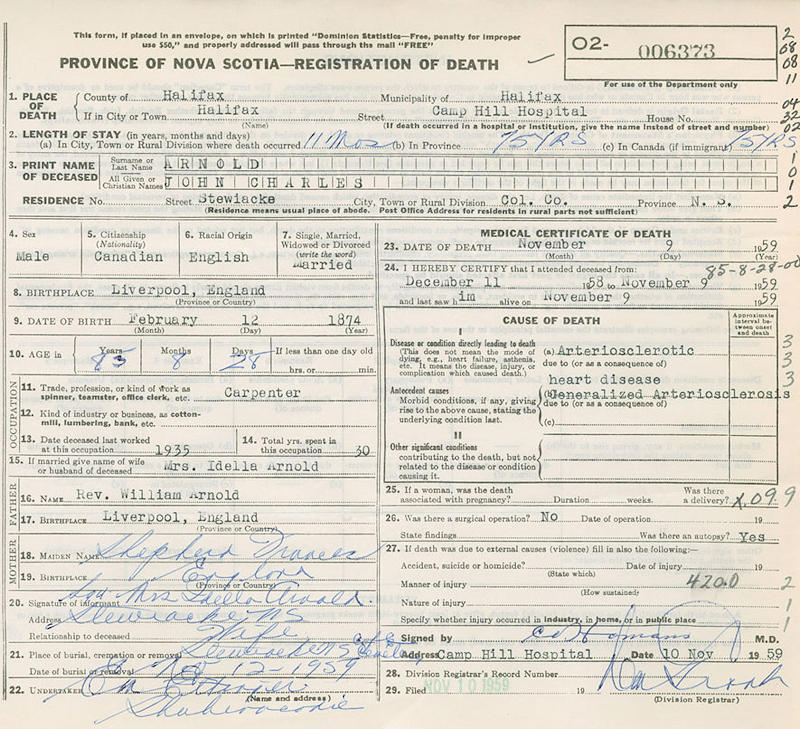 This form, if placed in an envelope, on which is printed "Dominion Statistics—Free, penalty for improper
use $50," and properly addressed will pass through the mail "FREE"
PROVINCE OF NOVA SCOTIA—REGISTRATION OF DEATH
02- 006373
For use of the Department only
2
08
08
11
04
32
02
1
0
1
2
1. PLACE OF DEATH
County of Halifax Municipality of Halifax
If in City or Town Halifax Street Camp Hill Hospital House No.
(Name) (If death occurred in a hospital or institution, give the name instead of street and number)
2. LENGTH OF STAY (in years, months and days)
(a) In City, Town or Rural Division where death occurred 11 Mos (b) In Province 75 YRS (c) In Canada (if immigrant) 75 YRS
3. PRINT NAME OF DECEASED
Surname or Last Name ARNOLD
All Given or Christian Names JOHN CHARLES
RESIDENCE No. Street Stewiacke City, Town or Rural Division Col. Co. Province N. S.
(Residence means usual place of abode. Post Office Address for residents in rural parts not sufficient)
4. Sex
Male
5. Citizenship
(Nationality)
Canadian
6. Racial Origin
English
7. Single, Married, Widowed or Divorced
(write the word)
Married
8. BIRTHPLACE Liverpool, England
(Province or Country)
9. DATE OF BIRTH February 12 1874
(Month) (Day) (Year)
10. AGE in Years Months Days If less than one day old
85 8 28 hrs. or min.
OCCUPATION
11. Trade, profession, or kind of work as
spinner, teamster, office clerk, etc. Carpenter
12. Kind of industry or business, as cotton-
mill, lumbering, bank, etc.
13. Date deceased last worked
at this occupation 1935
14. Total yrs. spent in
this occupation 30
15. If married give name of wife
or husband of deceased Mrs. Idella Arnold
FATHER
16. NAME Rev. William Arnold
17. BIRTHPLACE Liverpool, England
(Province or Country)
MOTHER
18. MAIDEN NAME Shepherd Frances
19. BIRTHPLACE England
(Province or Country)
20. Signature of informant Mrs Idella Arnold
Address Stewiacke NS
Relationship to deceased Wife
21. Place of burial, cremation or removal Stewiacke NS
Date of burial or removal Nov 12-1959
22. UNDERTAKER
(Name and address)
Shubenacadie
MEDICAL CERTIFICATE OF DEATH
23. DATE OF DEATH November 9 1959
(Month) (Day) (Year)
24. I HEREBY CERTIFY that I attended deceased from: 85-8-28-00
December 11 1958 to November 9 1959
and last saw him alive on November 9 1959
CAUSE OF DEATH
Approximate interval between onset and death
I
Disease or condition directly leading to death
(This does not mean the mode of dying, e.g., heart failure, asthma, etc. It means the disease, injury, or complication which caused death.)
(a) Arteriosclerotic
due to (or as a consequence of)
heart disease
Antecedent causes
Morbid conditions, if any, giving rise to the above cause, stating the underlying condition last.
(b) Generalized Arteriosclerosis
due to (or as a consequence of)
(c)
3
3
3
3
II
Other significant conditions
contributing to the death, but not related to the disease or condition causing it.
25. If a woman, was the death
associated with pregnancy? Duration weeks. Was there a delivery? X.099
26. Was there a surgical operation? No Date of operation 19
State findings Was there an autopsy? Yes
27. If death was due to external causes (violence) fill in also the following:—
Accident, suicide or homicide? Date of injury 19
(State which)
Manner of injury 420.0 2
(How sustained)
Nature of injury 1
Specify whether injury occurred in industry, in home, or in public place 1
Signed by M.D.
Address Camp Hill Hospital Date 10 Nov 1959
28. Division Registrar's Record Number
29. Filed NOV 10 1959 19
(Division Registrar)